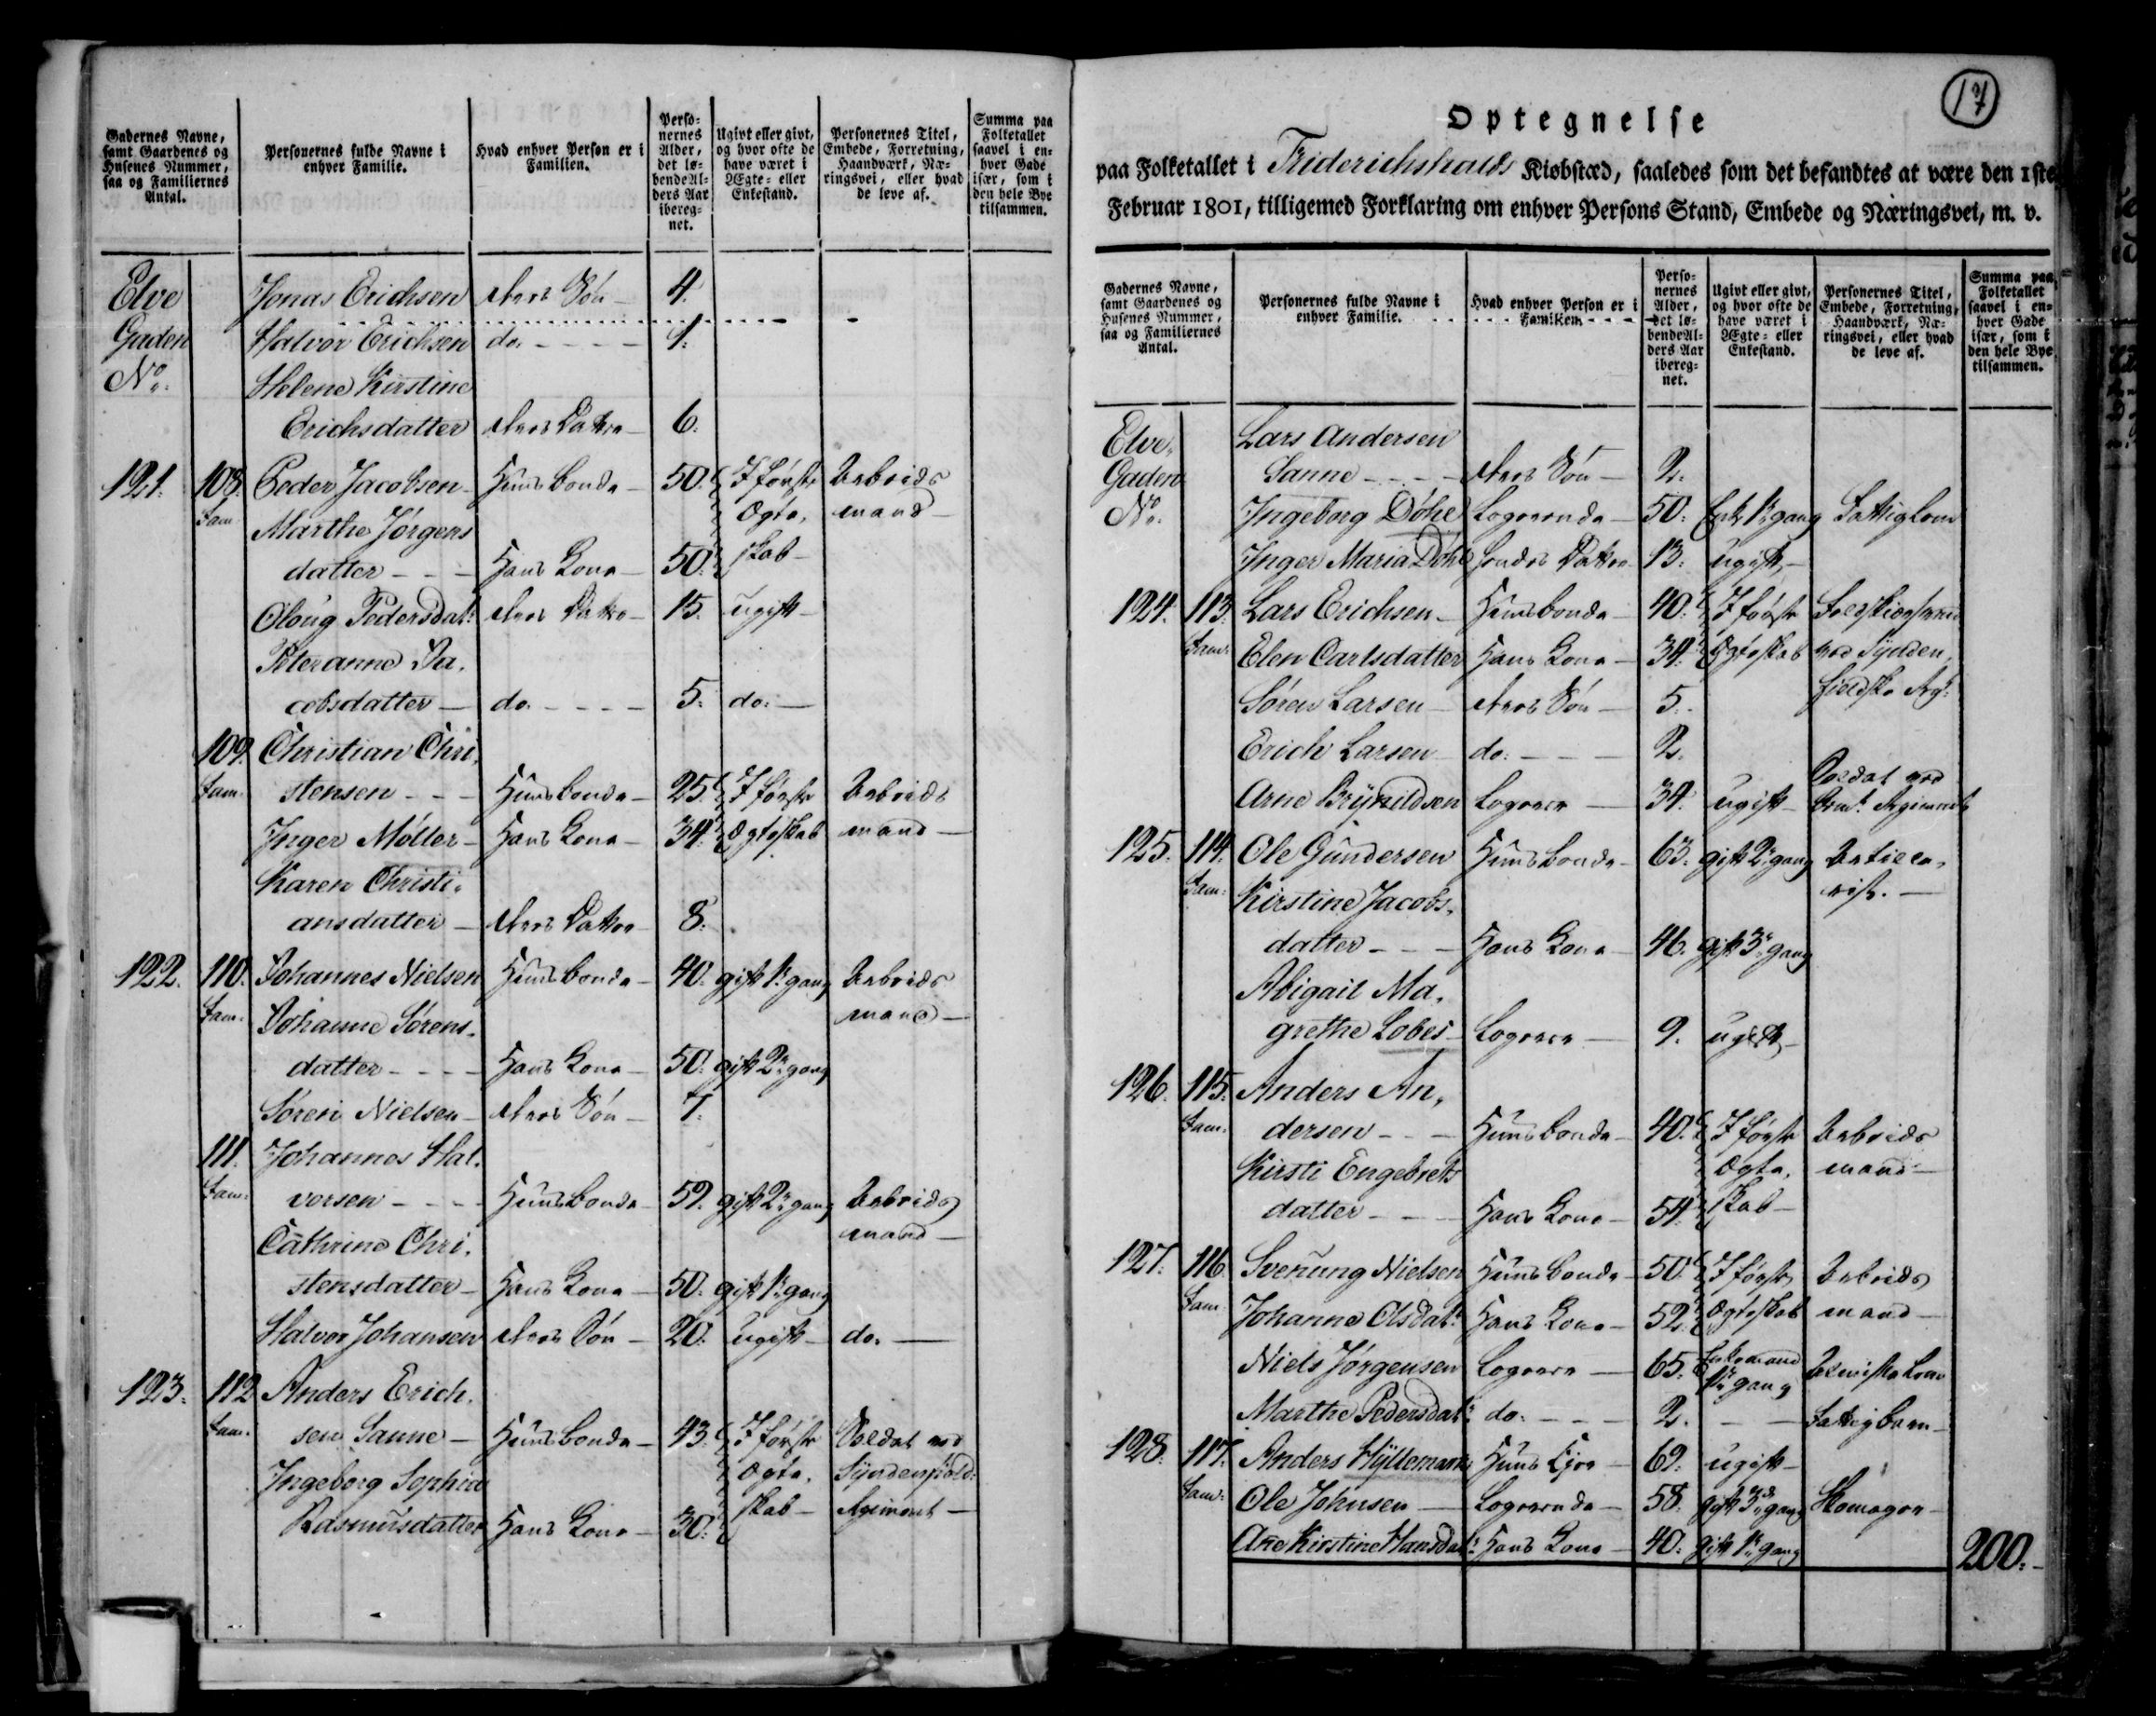 Gadernes Navne,
samt Gaardenes og
Husenes Nummer,
saa og Familiernes
Antal.
Personernes fulde Navne i
enhver Familie.
Hvad enhver Person er i
Familien.
Perso-
nernes
Alder,
det lø-
bende Al-
ders Aar
ibereg-
net.
Ugivt eller givt,
og hvor ofte de
have været i
Ægte- eller
Enkestand.
Personernes Titel,
Embede, Forretning,
Haandværk, Næ-
ringsvei, eller hvad
de leve af.
Summa paa
Folketallet
saavel i en-
hver Gade
især, som i
den hele Bye
tilsammen.
Elve Jonas Erichsen deres Søn 4.
Gaden Halvor Erichsen do. 1.
No. Helene Kirstine
Erichsdatter deres Datter 6.
121. 108. Peder Jacobsen Huusbonde 50. I første Arbeids
Fam. Marthe Jørgens Ægte, mand
datter Hans Kone 50. skab
Oloug Pedersdatr. deres Datter 15. ugift
Peteranne Ja,
cobsdatter do. 5. do.
109. Christian Chri,
Fam. stensen Huusbonde 25. I første Arbeids
Inger Møller Hans Kone 34. Ægteskab mand
Karen Christi,
ansdatter deres Datter 8.
122. 110. Johannes Nielsen Huusbonde 40. gift 1e gang Arbeids
Fam. Johanne Sørens, mand
datter Hans Kone 50. gift 2n gang
Søren Nielsen deres Søn 7.
111. Johannes Hal,
Fam. vorsen Huusbonde 59. gift 2n gang Arbeids
Cathrine Chri, mand
stensdatter Hans Kone 50. gift 1e gang
Halvor Johansen deres Søn 20. ugift do.
123. 112 Anders Erich,
Fam. sen Sanne Huusbonde 43. I første Soldat ved
Ingeborg Sophia Ægte, Syndenfield.
Rasmusdatter Hans Kone 30. skab Regiment
17
Optegnelse
paa Folketallet i Friderichshalds Kiøbstæd, saaledes som det befandtes at være den 1ste
Februar 1801, tilligemed Forklaring om enhver Persons Stand, Embede og Næringsvei, m. v.
Gadernes Navne,
samt Gaardenes og
Husenes Nummer,
saa og Familiernes
Antal.
Personernes fulde Navne i
enhver Familie.
Hvad enhver Person er i
Familien.
Perso-
nernes
Alder,
det lø-
bende Al-
ders Aar
ibereg-
net.
Ugivt eller givt,
og hvor ofte de
have været i
Ægte- eller
Enkestand.
Personernes Titel,
Embede, Forretning,
Haandværk, Næ-
ringsvei, eller hvad
de leve af.
Summa paa
Folketallet
saavel i en-
hver Gade
især, som i
den hele Bye
tilsammen.
Elve, Lars Andersen
Gaden Sanne deres Søn 2.
No. Ingeborg Døhe Logerende 50. Enke 1e gang Fattiglem
Inger Maria Døhe hendes Datter 13. ugift
124. 113. Lars Erichsen Huusbonde 40. I første
Fam. Elen Carlsdatter Hans Kone 34. Ægteskab ved Synden,
Søren Larsen deres Søn 5. fieldske Rgt.
Erich Larsen do. 2.
Arne Brynildsen Logerer 34. ugift Soldat ved Regiment
125. 114. Ole Gundersen Huusbonde 63. gift 2n gang Artille,
Fam. Kirstine Jacobs, rist.
datter Hans Kone 46. gift 3e gang
Abigail Ma,
grethe Lobes Logerer 9. ugift
126. 115. Anders An,
Fam. dersen Huusbonde 40. I første Arbeids
Kirsti Engebrets Ægte, mand
datter Hans Kone 54. skab
127. 116 Svenung Nielsen Huusbonde 50. I første Arbeids
Fam. Johanne Olsdatr. Hans Kone 52. Ægteskab mand
Niels Jørgensen Logerer 65. Enkemand 1e gang Almisselem
Marthe Pedersdatr. do. 2. Fattigbarn
128. 117. Anders Hyllemark Huus Ejer 69. ugift
Fam. Ole Johnsen Logerende 58. gift 3de gang Skomager
Ane Kirstine Hansdatr. Hans Kone 40. gift 1e gang
200.